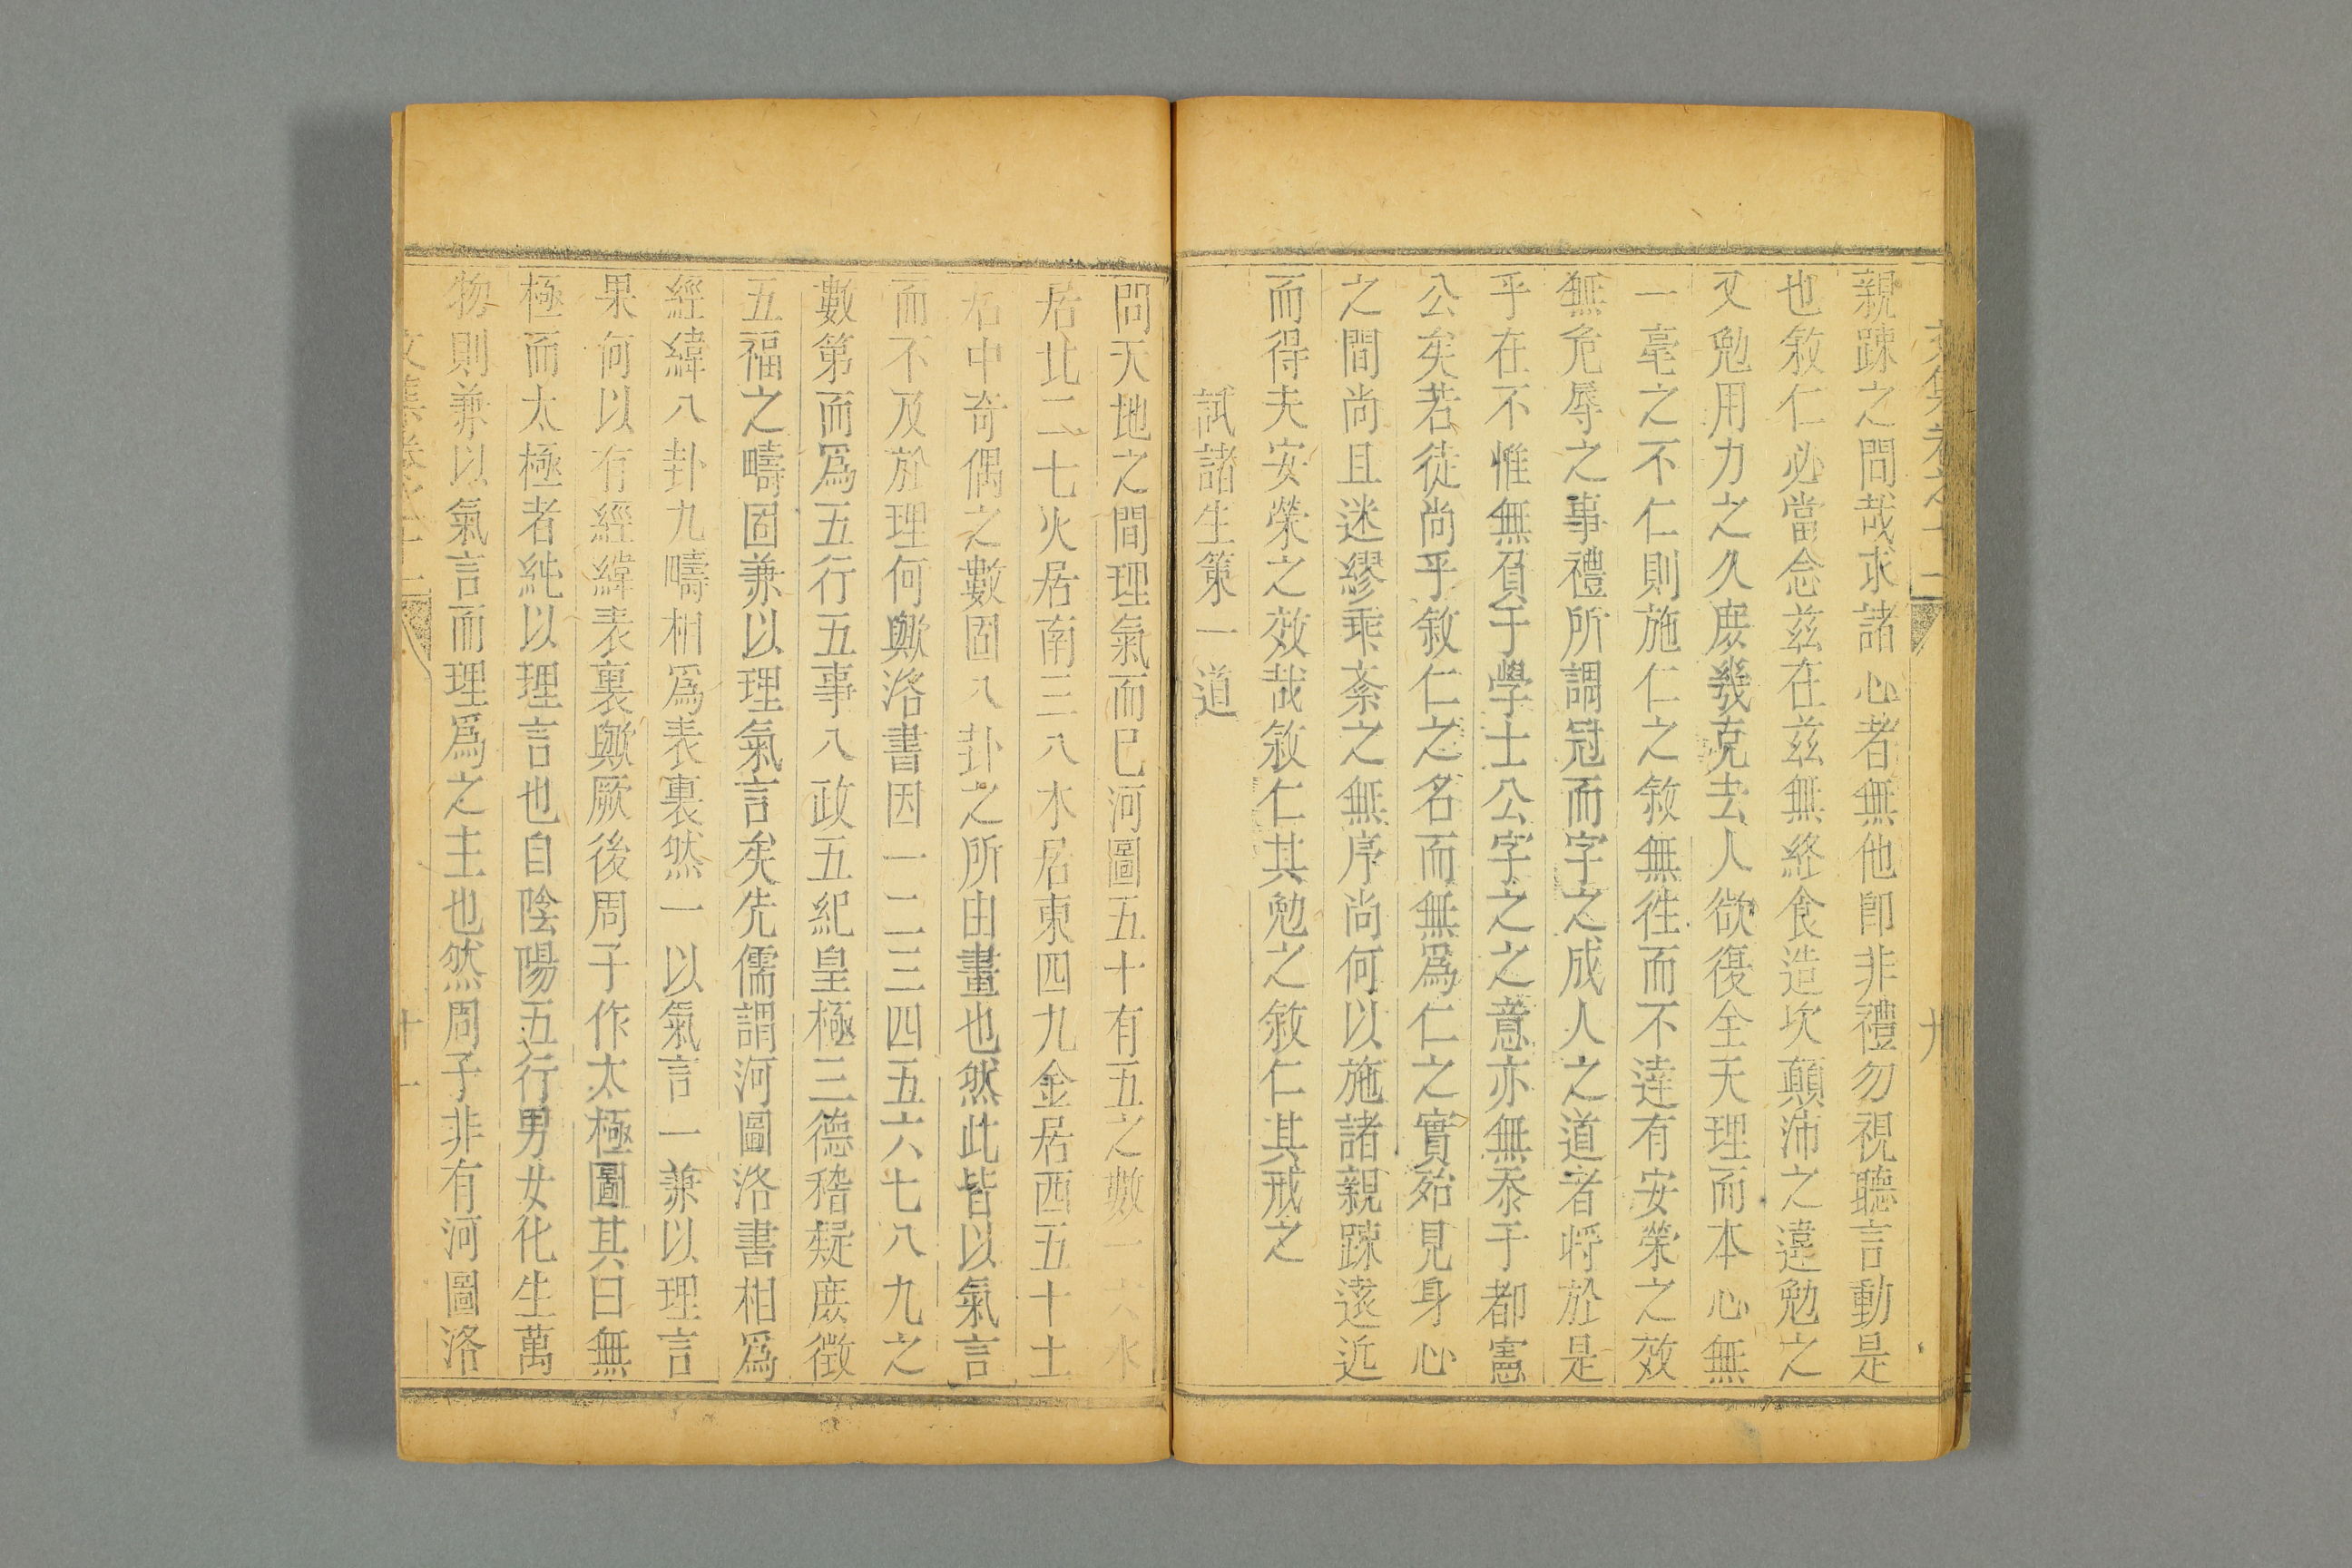 親踈之間哉求諸心者無他卽非禮勿視聽言動是
也敘仁必當念兹在兹無終食造次顛沛之違勉之
又勉用力之久庶幾克去人欲復全天理而本心無
一毫之不仁則施仁之敘無徃而不達有安榮之效
無危辱之事禮所謂冠而字之成人之道者將於是
乎在不惟無負于學士公字之之意亦無忝于都憲
公矣若徒尚乎敘仁之名而無爲仁之實殆見身心
之間尚且迷繆乖紊之無序尚何以施諸親踈遠近
而得夫安榮之效哉敘仁其勉之敘仁其戒之
試諸生策一道
問天地之間理氣而已河圖五十有五之數一六水
居北二七火居南三八木居東四九金居西五十土
居中奇偶之數固八卦之所由畫也然此皆以氣言
而不及於理何歟洛書因一二三四五六七八九之
數第而爲五行五事八政五紀皇極三德稽疑庶徵
五福之疇固兼以理氣言矣先儒謂河圖洛書相爲
經緯八卦九疇相爲表裏然一以氣言一兼以理言
果何以有經緯表裏歟厥後周子作太極圖其曰無
極而太極者純以理言也自陰陽五行男女化生萬
物則兼以氣言而理爲之主也然周子非有河圖洛
文集卷之十二
十一